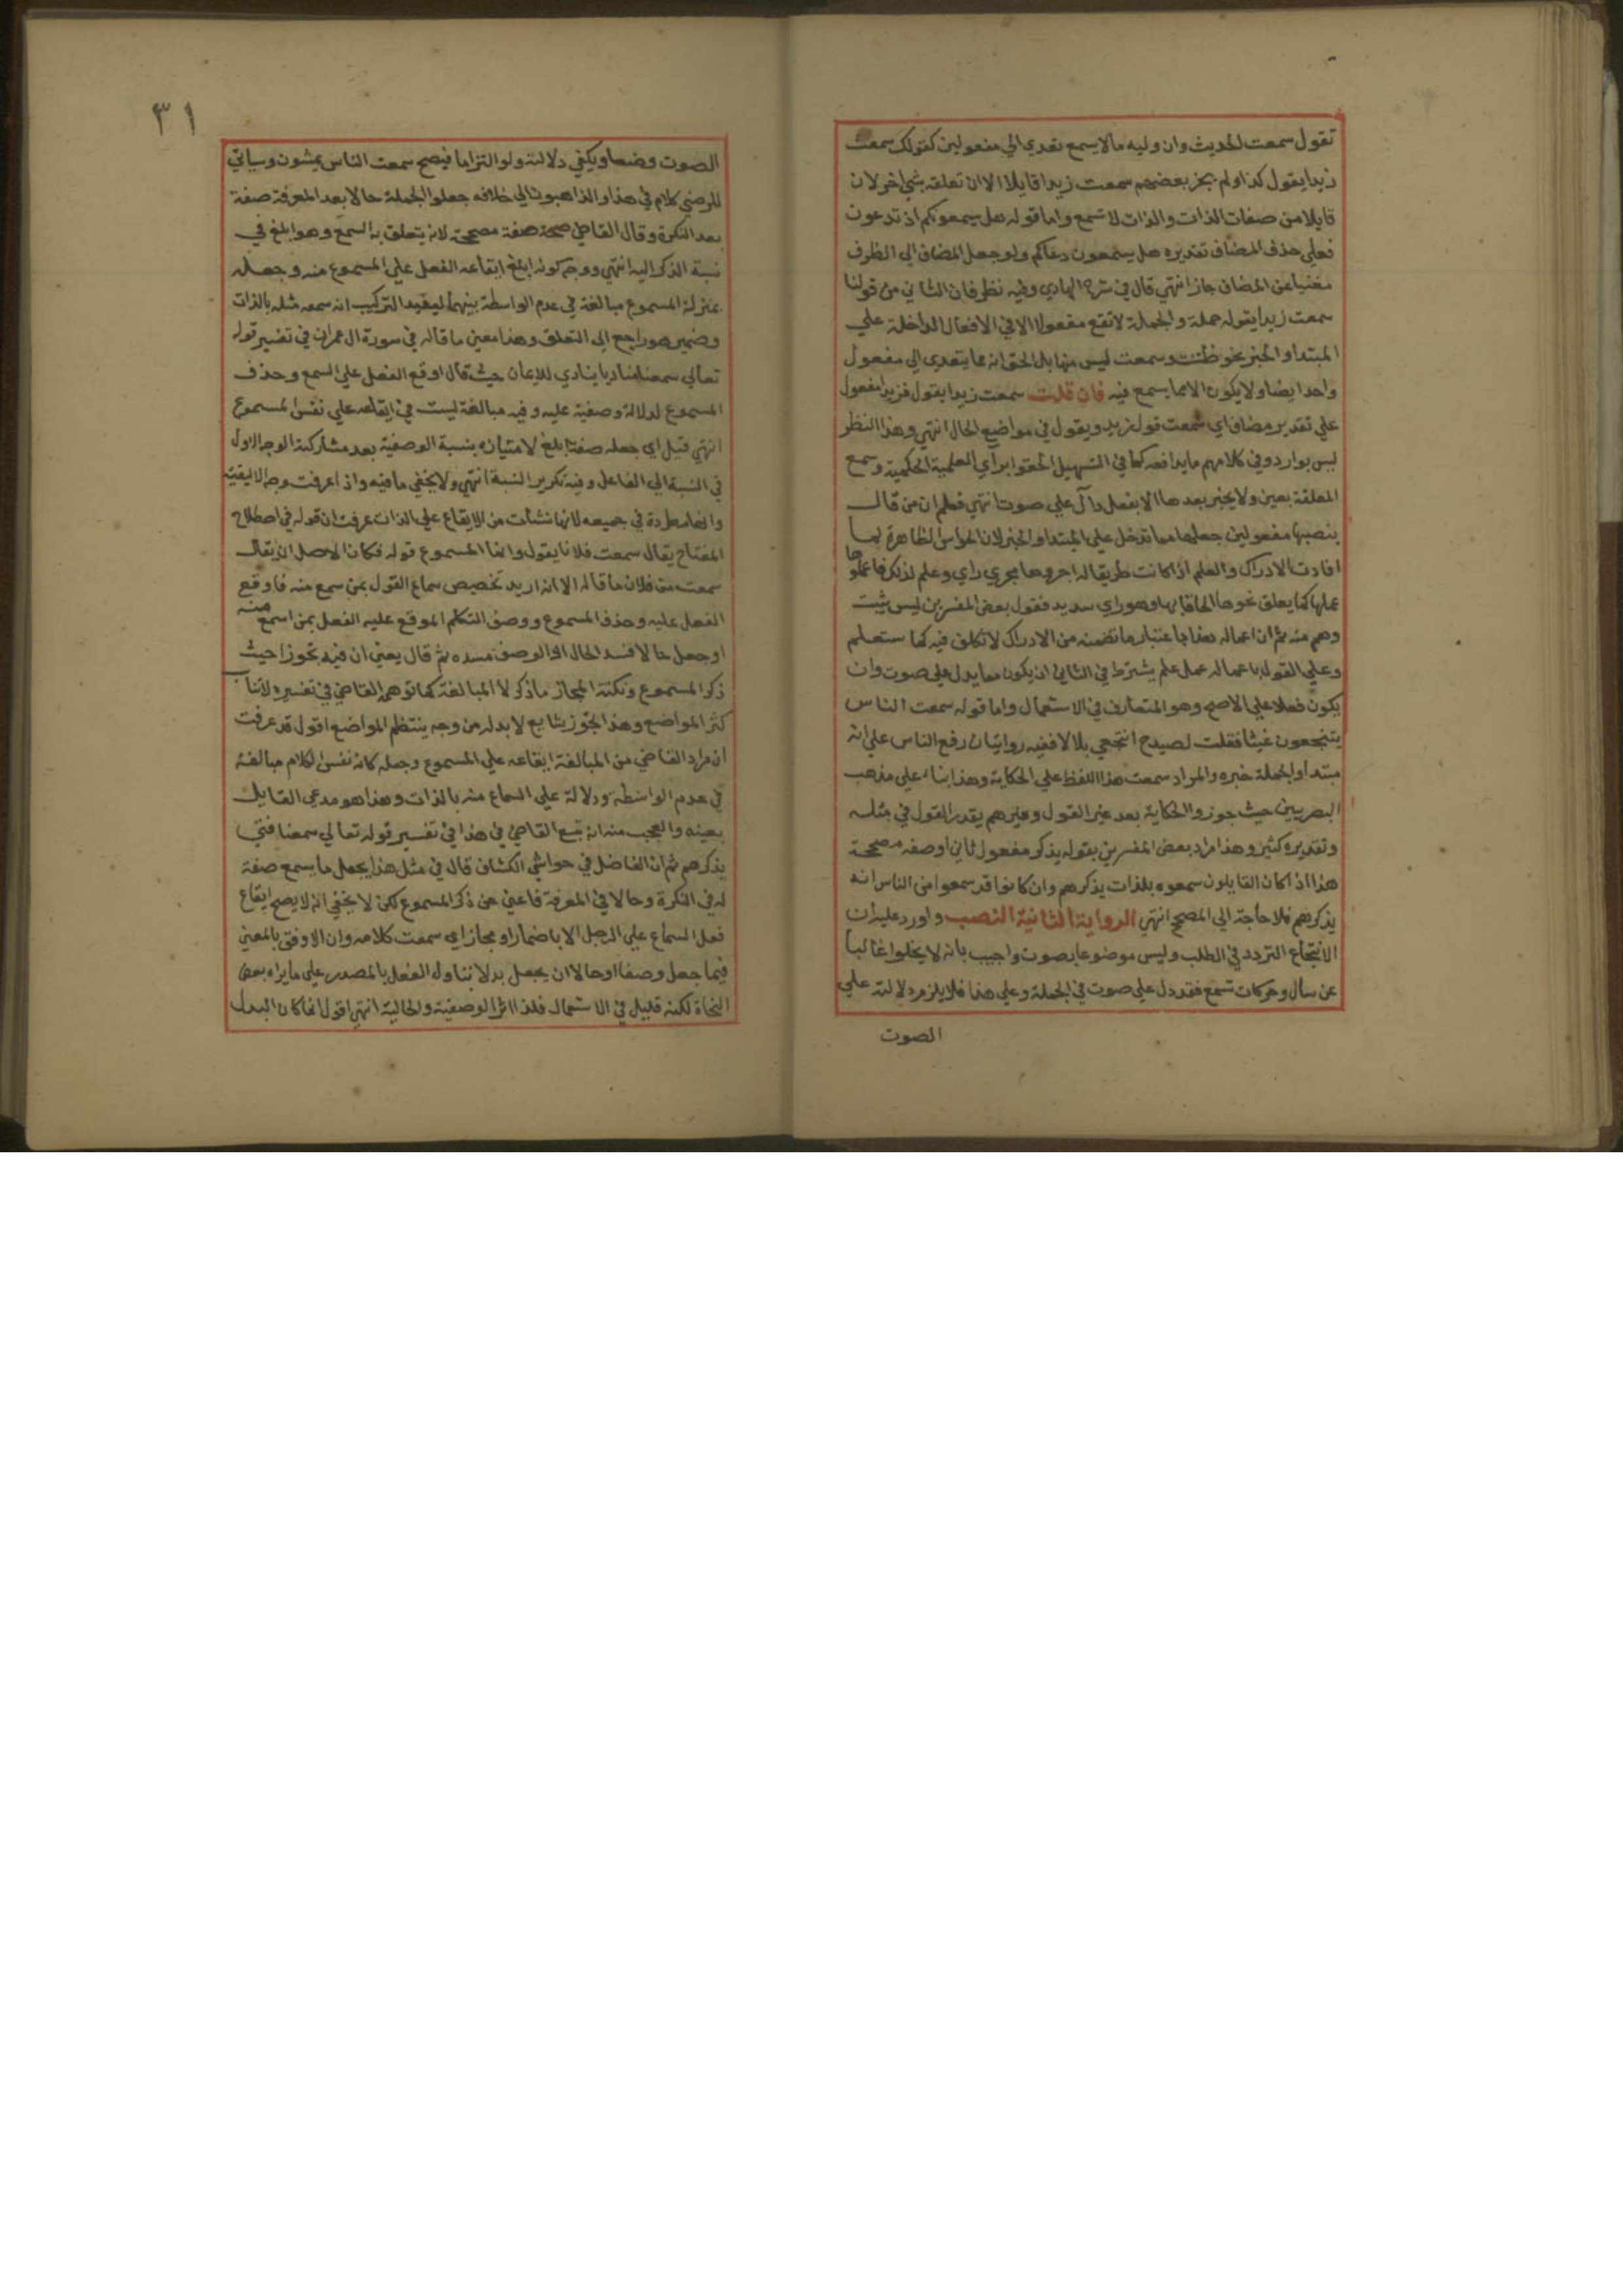 تقول سمعت الحديث وان وليه مالا يسمع تعدي الي مفعولين كقولك سمعت
زيدا يقول كذا ولم يجز بعضهم سمعت زيدا قايلا الا ان تعلقه بشي اخر لان
قايلا من صفات الذات والذات لا تسمع واما قوله هل يسمعونكم اذ تدعون
فعلي حذف المضاف تقديره هل يستمعون دعاكم ولو جعل المضاف الي الظرف
مغنيا عن المضاف جاز انتهي قال في شرح الهادي وفيه نظر فان الثاني من قولنا
سمعت زيدا يقوله جملة والجملة لا تقع مفعولا الا في الافعال الداخلة علي
المبتدا والخبر نحو ظننت وسمعت ليس منها بل الحق انه مما يتعدي الي مفعول
واحد ايضا ولا يكون الا مما يسمع فيه فان قلت سمعت زيدا يقول فزيدا مفعول
علي تقدير مضاف اي سمعت قول زيد ويقول في مواضع الحال انتهي وهذا النظر
ليس بوارد وفي كلامهم ما يدافعه كما في التسهيل الحقوا براي العلمية الحكمية وسمع
المعلقة بعين ولا يخبر بعدها الا بفعل دال علي صوت انتهي فعلم ان من قال
ينصبها مفعولين جعلها مما تدخل علي المبتدا والخبر لان الحواس الظاهرة لما
افادت الادراك والعلم اذا كانت طريقا له اجروها مجري راي وعلم لذلك فاعملوها
عملها كما يعلق نحوها الحاقا بها وهو راي سديد فقول بعض المفسرين ليس بثبت
وهم منه ثم ان اعماله هذا باعتبار ما تضمنه من الادراك لا تكلف فيه كما ستعلم
وعلي القول باعماله عمل علم يشترط في الثاني ان يكون مما يدل علي صوت وان
يكون فعلا علي الاصح وهو المتعارف في الاستعمال واما قوله سمعت الناس
ينتجعون غيثا فقلت لصيدح انتجعي بلالا ففيه روايتان رفع الناس علي انه
مبتدا والجملة خبره والمراد سمعت هذا اللفظ علي الحكاية وهذا بناء علي مذهب
البصريين حيث جوزوا الحكاية بعد غير القول وغيرهم يقدر القول في مثله
وتقديره كثير وهذا مراد بعض المفسرين بقوله يذكر مفعول ثاني او صفه مصححة
هذا اذا كان القايلون سمعوه بلذات يذكرهم وان كانوا قد سمعوا من الناس انه
يذكرهم فلا حاجة الي المصحح انتهي الرواية الثانية النصب واورد عليه ان
الانتجاع التردد في الطلب وليس موضوعا بصوت واجيب بانه لا يخلوا غالبا
عن سال وحركات تسمع فقد دل علي صوت في الجملة وعلي هذا فلا يلزم دلالته علي
الصوت
٣١
الصوت وضعا ويكفي دلالته ولو التزاما فيصح سمعت الناس يمشون وسياتي
للرضي كلام في هذا والذاهبون الي خلافه جعلوا الجملة حالا بعد المعرفة صفة
بعد النكرة وقال القاضي صحة صفة مصححة لانه يتعلق به السمع وهو ابلغ في
نسبة الذكر اليه انتهي ووجه كونه ابلغ ايقاعه الفعل علي المسموع منه وجعله
بمنزلة المسموع مبالغة في عدم الواسطة بينهما ليفيد التركيب انه سمعه مثله بالذات
وضمير هو راجع الي التعلق وهذا معني ما قاله في سورة ال عمران في تفسير قوله
تعالي سمعنا مناديا ينادي للايمان حيث قال اوقع الفعل علي السمع وحذف
المسموع لدلالة وصفية عليه وفيه مبالغة ليست في ايقاعه علي نفس المسموع
انتهي قيل اي جعله صفة ابلغ لامتيازه بنسبة الوصفية بعد مشاركته الوجه الاول
في النسبة الي الفاعل وفيه تكرير النسبة انتهي ولا يخفي ما فيه واذا عرفت وجه الابلغية
وانها مطردة في جميعه لانها نشات من الايقاع علي الذات عرفت ان قوله في اصطلاح
المفتاح يقال سمعت فلانا يقول وانما المسموع قوله فكان الاصل ان يقال
سمعت من فلان ما قاله الا انه اريد تخصيص سماع القول بمن سمع منه فاوقع
الفعل عليه وحذف المسموع ووصف التكلم الموقع عليه الفعل بمن اسمع منه
او جعل حالا فسد الحال او الوصف مسده ثم قال يعني ان فيه تجوزا حيث
ذكر المسموع ونكتة المجاز ما ذكر لا المبالغة كما توهمه القاضي في تفسيره لاتنا
كثر المواضع وهذا التجوز شايع لا بد له من وجه ينتظم المواضع اقول قد عرفت
ان مراد القاضي من المبالغة ايقاعه علي المسموع وجعله كانه نفس الكلام مبالغة
في عدم الواسطة ودلالة علي السماع منه بالذات وهذا هو مدعي القايل
بعينه والعجب منه انه تبع القاضي في هذا في تفسير قوله تعالي سمعنا فتي
يذكرهم ثم ان الفاضل في حواشي الكشاف قال في مثل هذا يجعل ما يسمع صفة
له في النكرة وحالا في المعرفة فاغني عن ذكر المسموع لكن لا يخفي انه لا يصح ايقاع
فعل السماع علي الرجل الا باضمار او مجاز اي سمعت كلامه وان الاوفق بالمعني
فيما جعل وصفا او حالا ان يجعل بدلا بتاول الفعل بالمصدر علي ما يراه بعض
النحاة لكنه قليل في الاستعمال فلذا اثر الوصفية والحالية انتهي اقول انما كان البدل